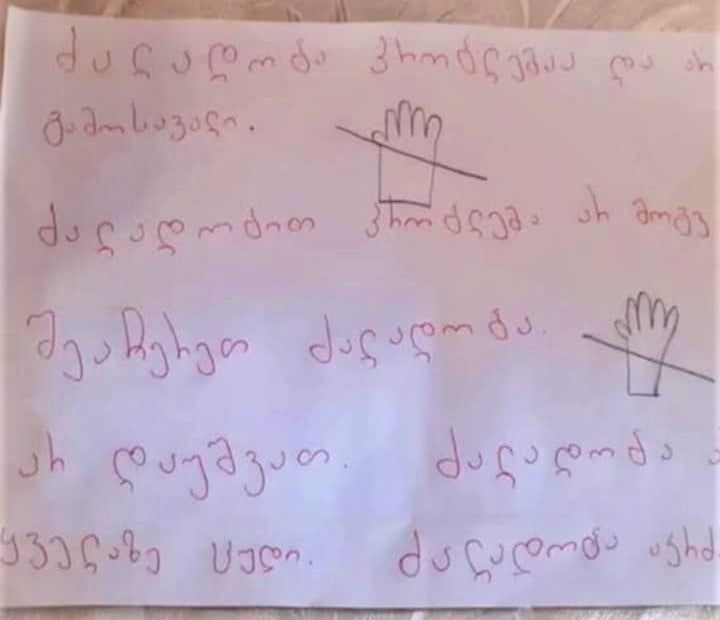 ძალადობა პრობლემაა და არ
გამოსავალი.
ძალადობით პრობლემა არ მოგვ
შეაჩერეთ ძალადობა.
არ დაუშვათ. ძალადობა ა
ყველაზე ცუდი. ძალადობა აკრძ